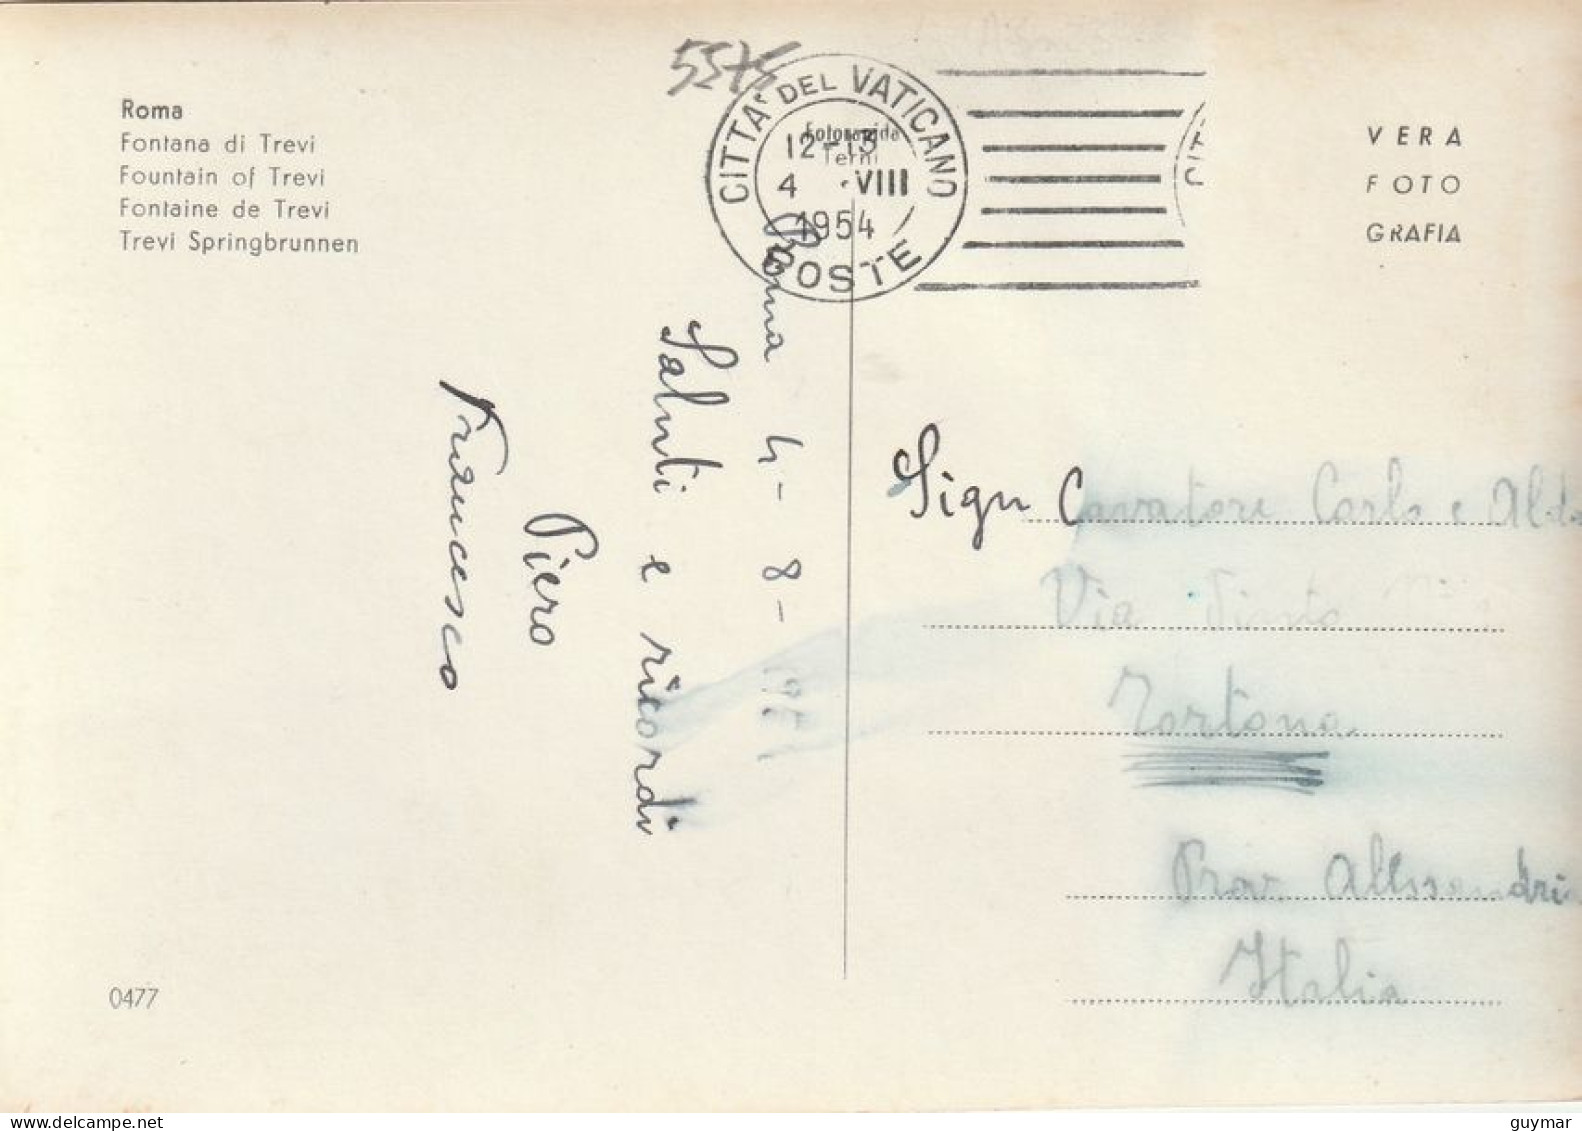 Roma
Fontana di Trevi
Fountain of Trevi
Fontaine de Trevi
Trevi Springbrunnen
CITTA' DEL VATICANO
12-13
4 ·VIII
1954
POSTE
Fotorapida
Terni
VERA
FOTO
GRAFIA
Roma 4-8-1954
Saluti e ricordi
Piero
Francesco
Sign Cavatore Carlo e Aldo
Via
Tortona
Prov Allessandria
Italia
0477
guymar